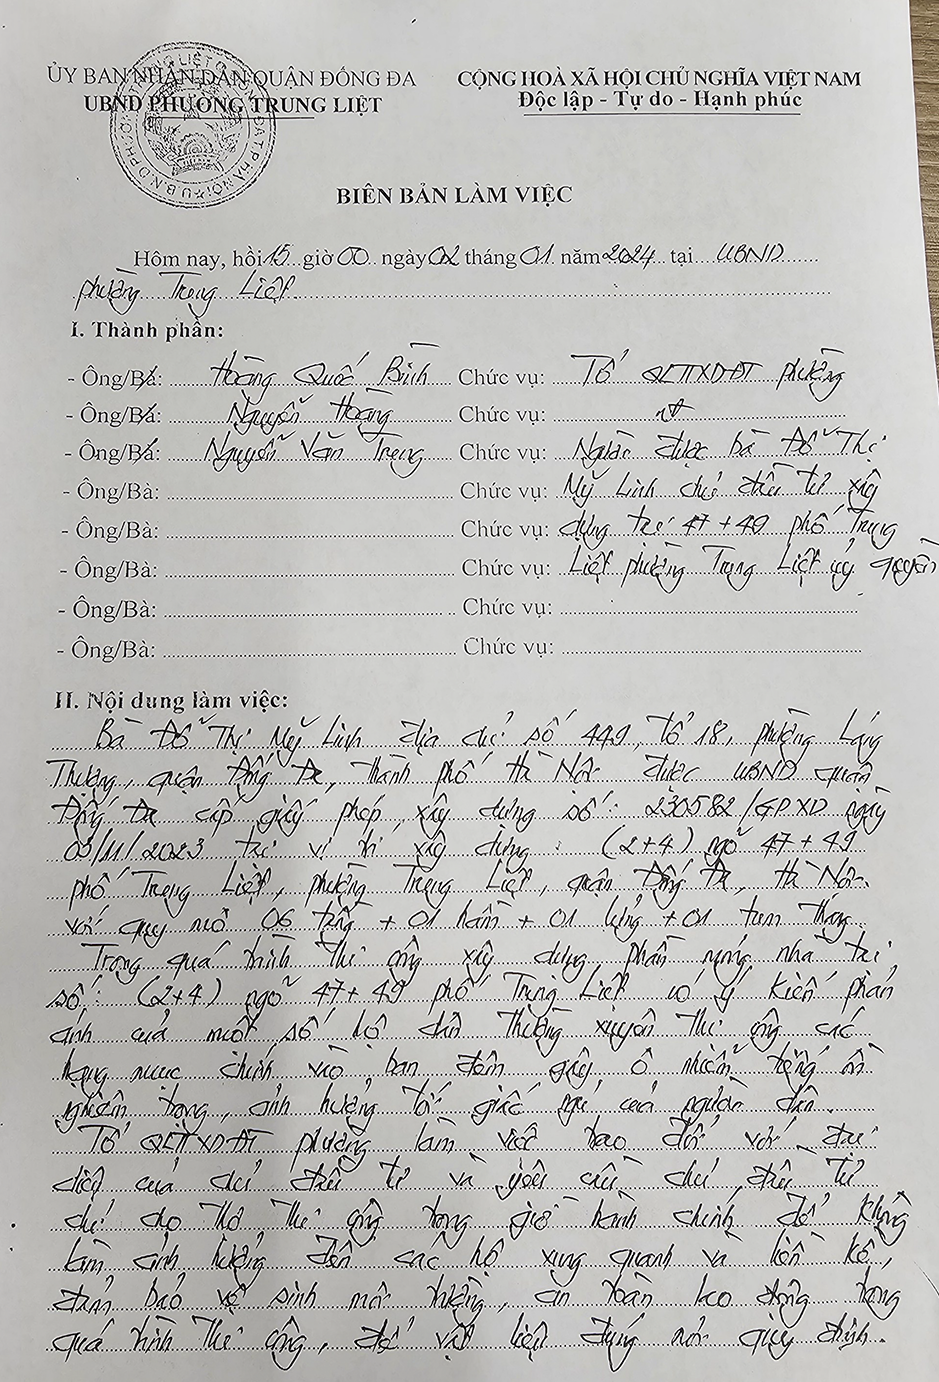 ỦY BAN NHÂN DÂN QUẬN ĐỐNG ĐA
UBND PHƯỜNG TRUNG LIỆT
CỘNG HOÀ XÃ HỘI CHỦ NGHĨA VIỆT NAM
Độc lập - Tự do - Hạnh phúc
BIÊN BẢN LÀM VIỆC
Hôm nay, hồi 15 giờ 00 ngày 02 tháng 01 năm 2024 tại UBND
phường Trung Liệt
I. Thành phần:
- Ông/Bà: Hoàng Quốc Bình Chức vụ: Tổ QLTTXDĐT phường
- Ông/Bà: Nguyễn Hoàng Chức vụ:
- Ông/Bà: Nguyễn Văn Trung Chức vụ: Người được bà Đỗ Thị
- Ông/Bà: Chức vụ: Mỹ Linh chủ đầu tư xây
- Ông/Bà: Chức vụ: dựng tại 47+49 phố Trung
- Ông/Bà: Chức vụ: Liệt phường Trung Liệt ủy quyền
- Ông/Bà: Chức vụ:
- Ông/Bà: Chức vụ:
II. Nội dung làm việc:
Bà Đỗ Thị Mỹ Linh địa chỉ số 449, Tổ 18, phường Láng
Thượng, quận Đống Đa, Thành phố Hà Nội được UBND quận
Đống Đa cấp giấy phép xây dựng số: 230582/GPXD ngày
03/11/2023 tại vị trí xây dựng: (2+4) ngõ 47+49
phố Trung Liệt, phường Trung Liệt, quận Đống Đa, Hà Nội.
với quy mô 06 tầng + 01 hầm + 01 lửng + 01 tum thang
Trong quá trình thi công xây dựng phần móng nhà tại
số: (2+4) ngõ 47+49 phố Trung Liệt có ý kiến phản
ánh của một số hộ dân thường xuyên thi công các
hạng mục chính vào ban đêm gây ô nhiễm tiếng ồn
nghiêm trọng, ảnh hưởng tới giấc ngủ của người dân.
Tổ QLTTXDĐT phường làm việc trao đổi với đại
diện của chủ đầu tư và yêu cầu chủ đầu tư
chỉ cho thợ thi công trong giờ hành chính để không
làm ảnh hưởng đến các hộ xung quanh và liền kề,
đảm bảo vệ sinh môi trường, an toàn lao động trong
quá trình thi công, để vật liệu đúng nơi quy định.